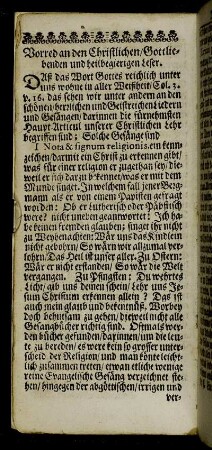 Vorred an den Christlichen/Gottlie-
benden und heilbegierigen Leser.
Daß das Wort Gottes reichlich unter
uns wohne in aller Weißheit Col. 3.
v. 16. das sehen wir unter andern an den
schönen/herrlichen und Geistreichen Liedern
und Gesängen/darinnen die fürnehmsten
Haupt Articul unserer Christlichen Lehr
begriffen sind; Solche Gesänge sind
I Nota & signum religionis. ein kenn-
zeichen/damit ein Christ zu erkennen gibt/
was für einer religion er zugethan sey/die-
weil er sich darzu bekennet/was er mit dem
Munde singet. In welchem fall jener Berg-
mann als er von einem Papisten gefragt
worden: Ob er Lutherisch oder Päbstisch
were? nicht uneven geantwortet: Ich ha-
be keinen fremden glauben; singet ihr nicht
zu Weyhenachten: Wär uns das Kindlein
nicht gebohrn/ So wärn wir allzumal ver-
lohrn/Das Heil ist unser aller. Zu Ostern:
Wär er nicht erstanden/ So wär die Welt
vergangen. Zu Pfingsten: Du werthes
Licht/ gib uns deinen schein/Lehr uns Je-
sum Christum erkennen allein? Das ist
auch mein glaub und bekentnüß. Worbey
doch behutsam zu gehen/ dieweil nicht alle
Gesangbücher richtig sind. Oftmals wer-
den bücher gefunden/darinnen/um die leu-
te zu bereden/es were kein so grosser unter-
scheid der Religion/ und man könte leicht-
lich zusammen treten/ etwan etliche wenige
reine Evangelische Gesäng verzeichnet ste-
hen/ hingegen der abgöttischen/ irrigen und
ver-